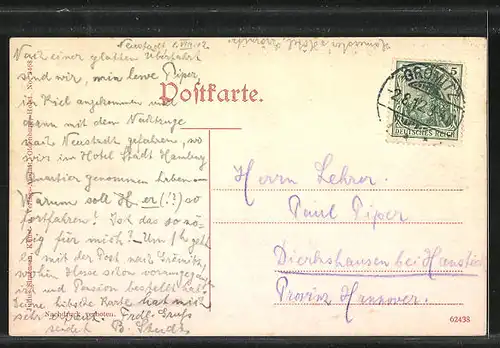 Neustadt
Nach einer glatten Überfahrt
sind wir, mein lewe Piper,
in Kiel angekommen und
dann mit dem Nachtzuge
nach Neustadt gefahren, wo
wir im Hotel Stadt Hamburg
Quartier genommen haben.
Warum soll H. er (!?) so
fortfahren! Ist das so nö-
tig für mich? - Um 1 ¼ geht
es mit der Post nach Grömitz,
wohin Herse schon vorangegangen
ist und Pension bestellt hat.
Deine hübsche Karte hat mich
sehr erfreut. Frdl. Gruß
sendet
Postkarte.
Nachdruck verboten.
GRÖMITZ
2.8.12
5
DEUTSCHES REICH
Herrn Lehrer
Paul Piper
Dierkshausen bei Hanstedt
Provinz Hannover.
62438